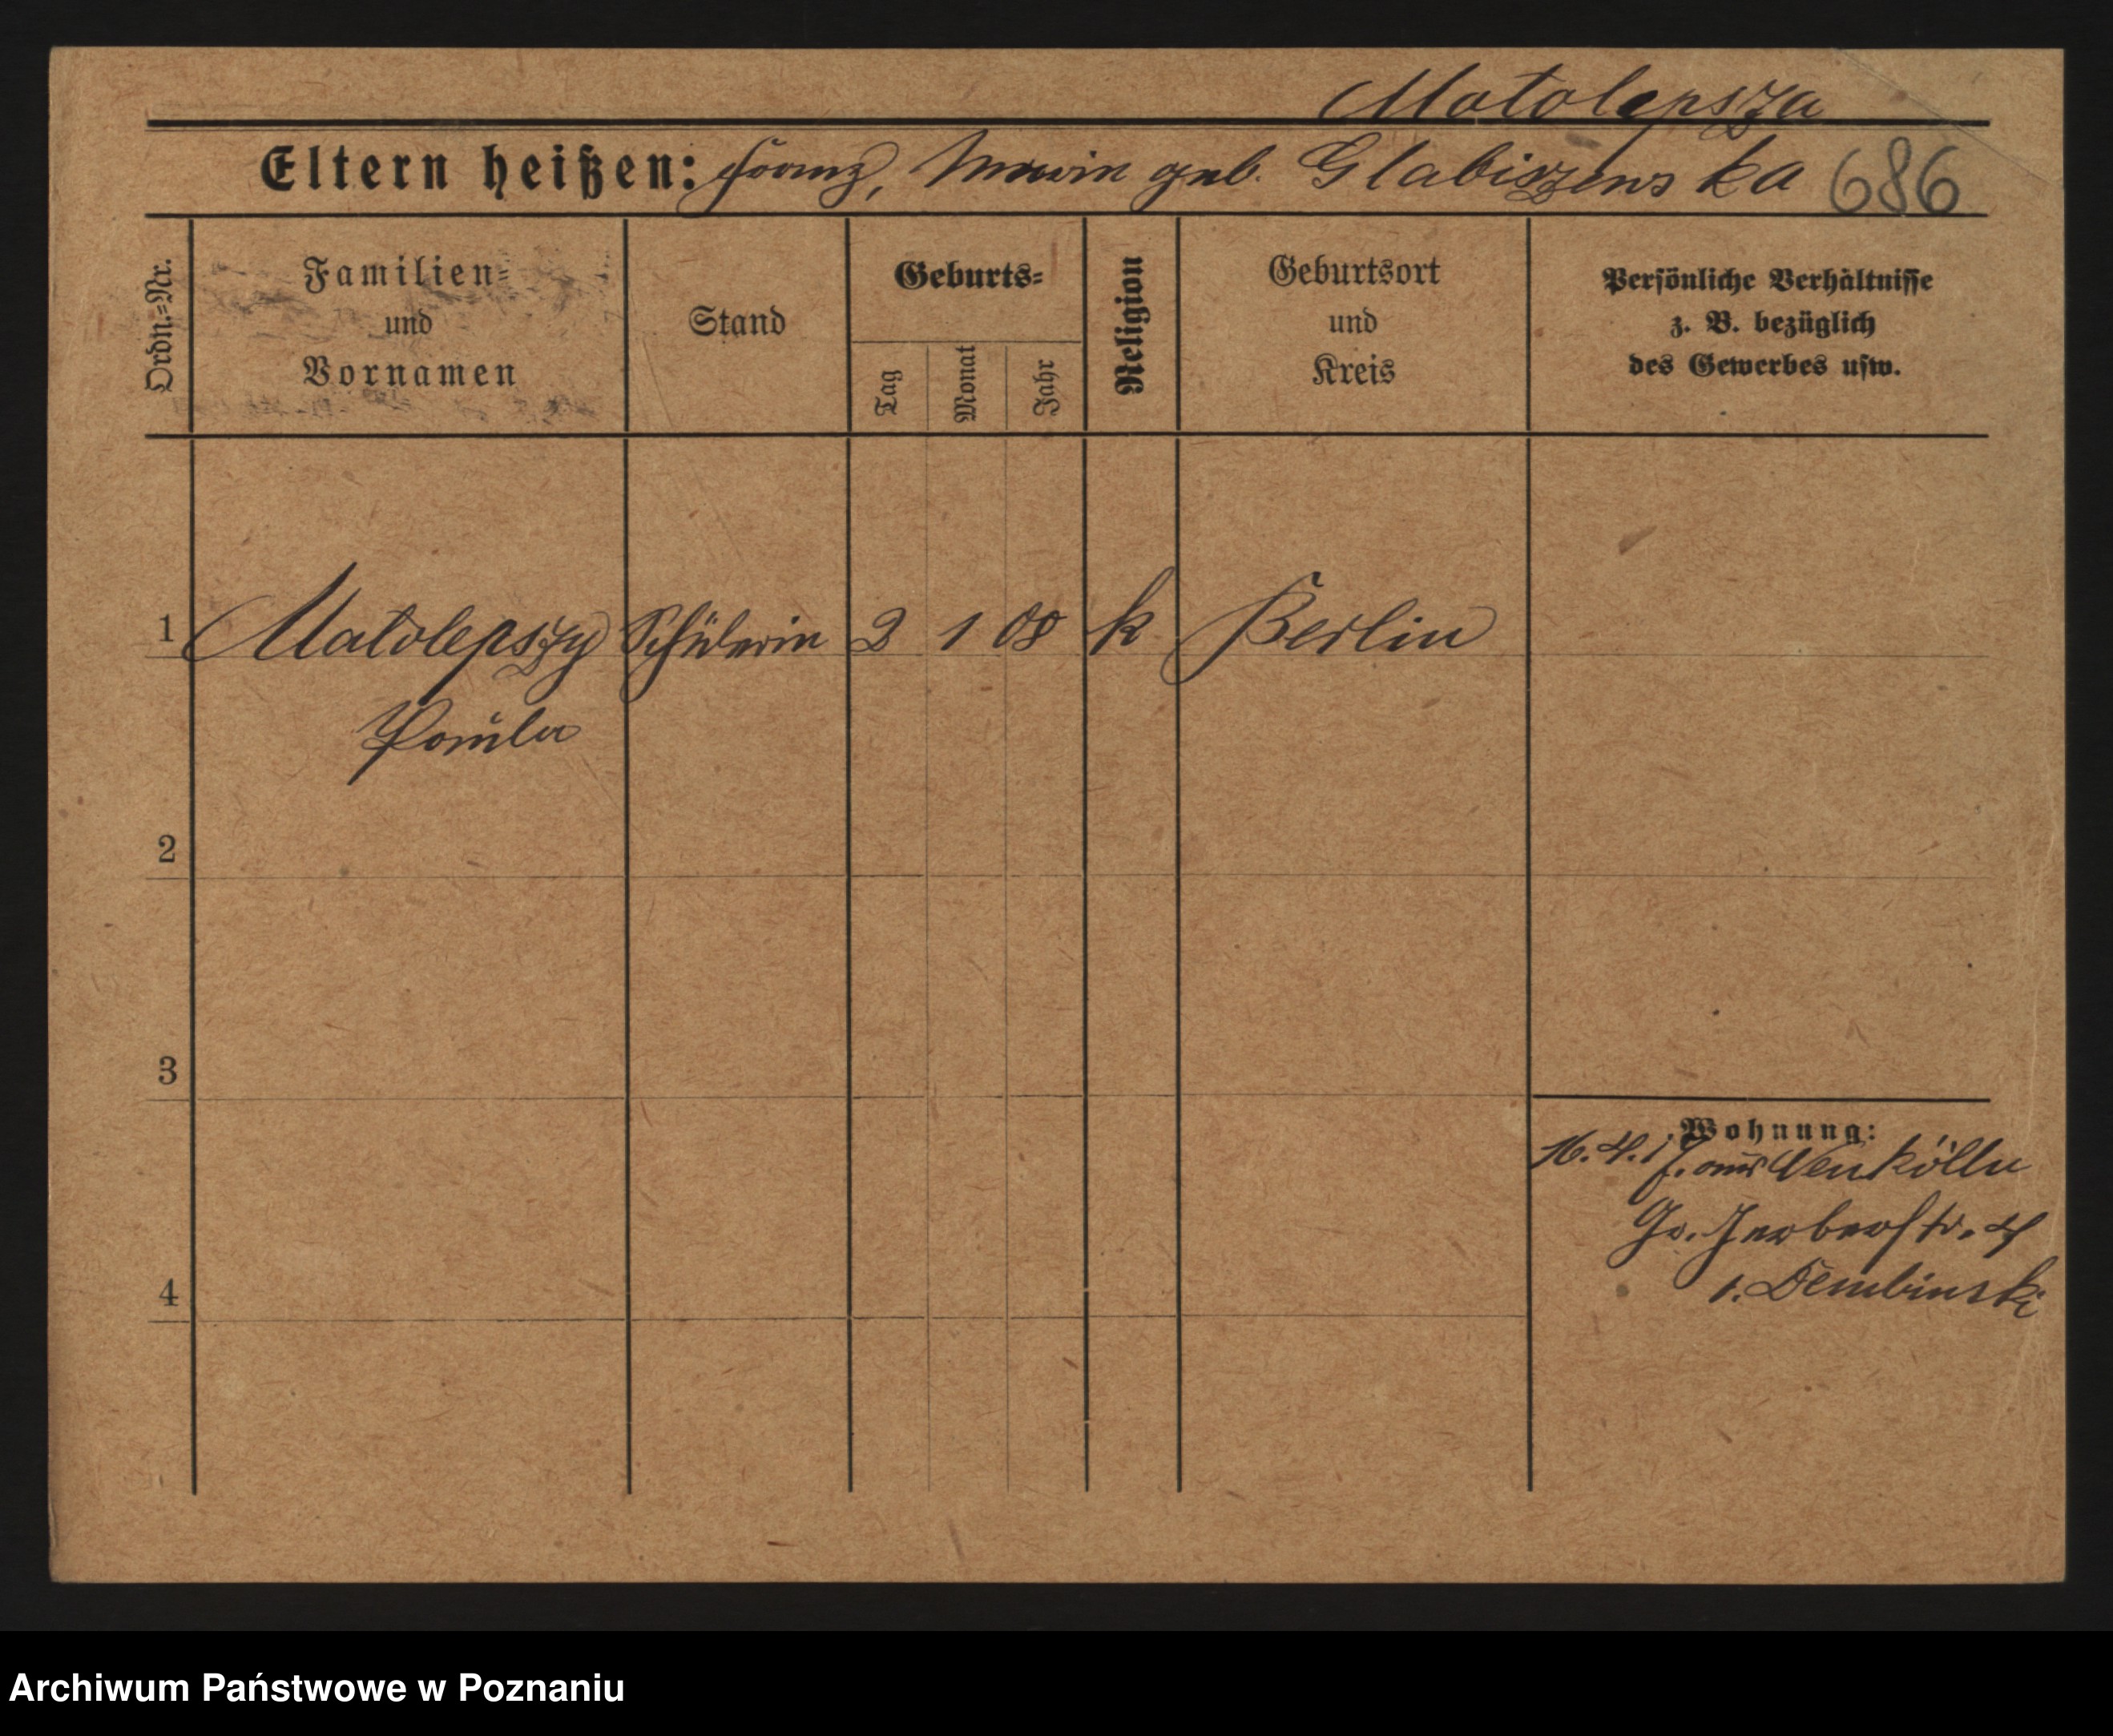 Matolepsza
Eltern heißen: Franz, Marie geb. Glabiszewska 686
Ordn.=Nr.
Familien=
und
Vornamen
Stand
Geburts=
Tag
Monat
Jahr
Religion
Geburtsort
und
Kreis
Persönliche Verhältnisse
z. B. bezüglich
des Gewerbes usw.
1 Matolepszy Schülerin 2 1 08 k Berlin
Paula
2
3
4
Wohnung:
16.4.17. aus Neukölln
Gr. Gerberstr. 4
b. Dembinski
Archiwum Państwowe w Poznaniu